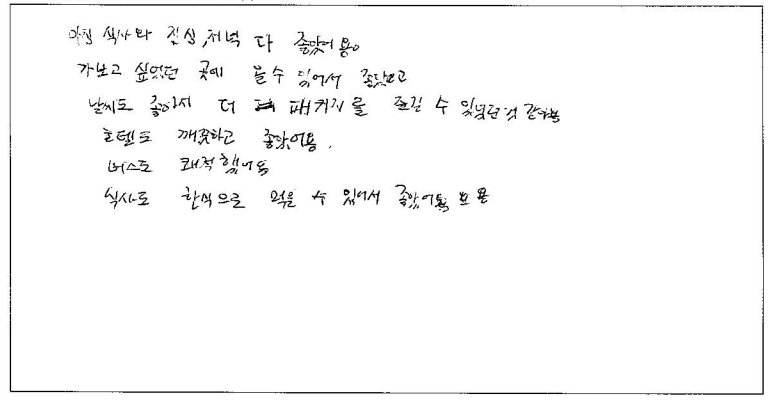 아침 식사와 점심,저녁 다 좋았어용
가보고 싶었던 곳에 올 수 있어서 좋았고
날씨도 좋아서 더 패키지를 즐길 수 있었던 것 같아용
호텔도 깨끗하고 좋았어용.
버스도 쾌적했어용
식사도 한식으로 먹을 수 있어서 좋았어용